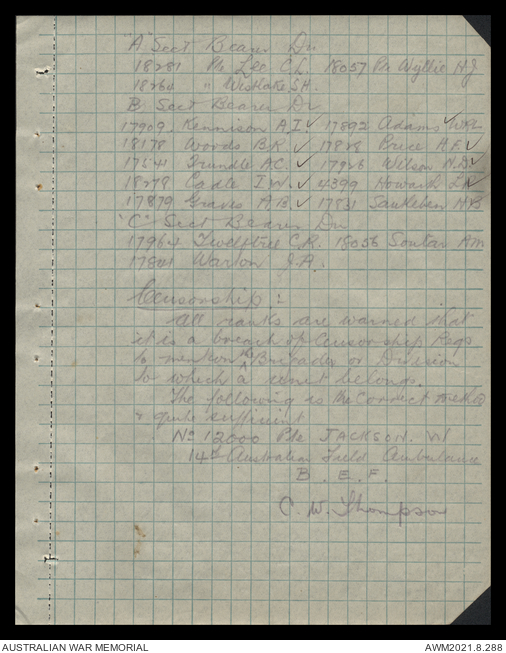 "A" Sect Bearer Div
18281 Pte Leo C.L. 18057 Pte Wyllie H.J
18264 " Westlake S.H.
B Sect Bearer Div
17909. Kennison A.I. ✓ 17892 Adams W.R. ✓
18178 Woods B.R. ✓ 17828 Price H.F. ✓
17541 Trundle A.C. ✓ 17926 Wilson N.D. ✓
18278 Cadle I.W. ✓ 4399 Howard L.A ✓
17879 Graves A.B. ✓ 17831 Sankleben H.B
"C" Sect Bearer Div
17964 Twelftree C.R. 18056 Soutar A.M
17841 Warton J.A.
Censorship:
All ranks are warned that
it is a breach of Censorship Regs
to mention the Brigade or Division
to which a unit belongs.
The following is the correct method
& quite sufficient
No 12000 Pte JACKSON. W
14th Australian Field Ambulance
B. E. F.
C. W. Thompson
AUSTRALIAN WAR MEMORIAL
AWM2021.8.288